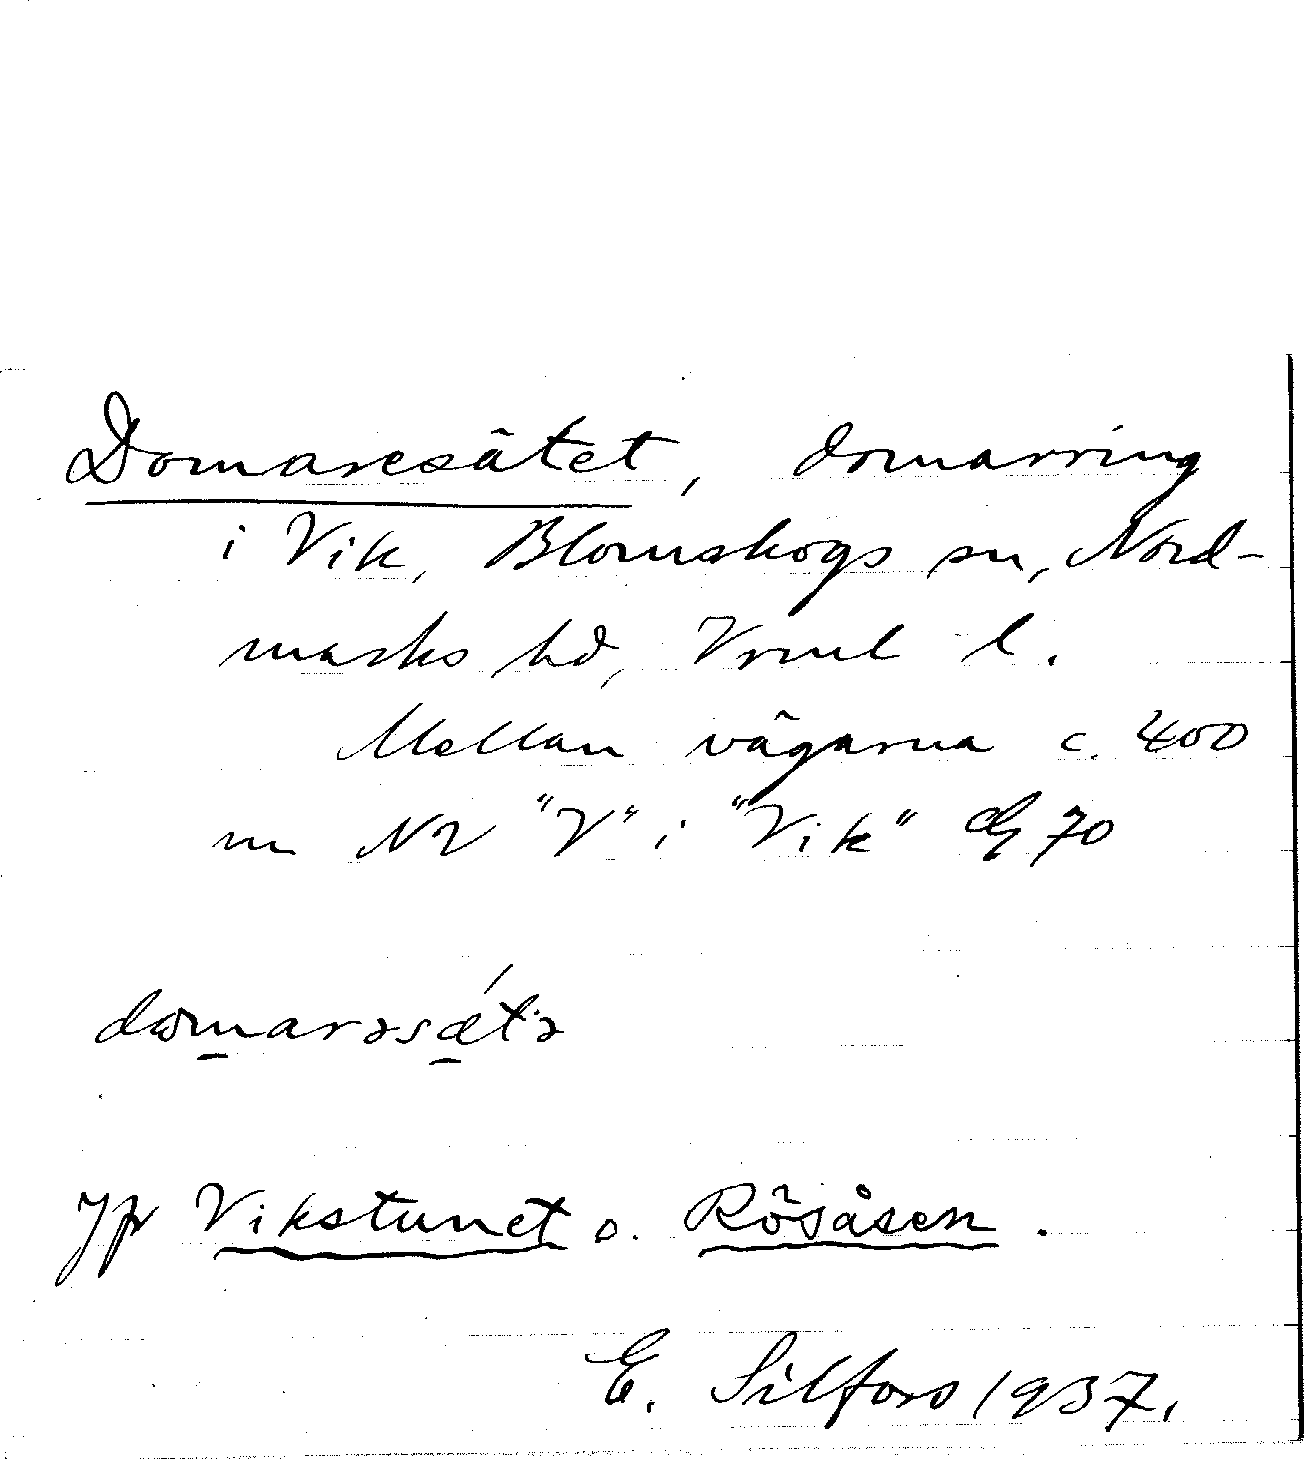 Domaresätet, domarring
i Vik, Blomskogs sn, Nord-
marks hd, Vrml l.
Mellan vägarna c. 400
m NV "V" i "Vik" Gg 70
domarəsǽt·ə
Jfr Vikstunet o. Rösåsen.
E. Silfors 1937.